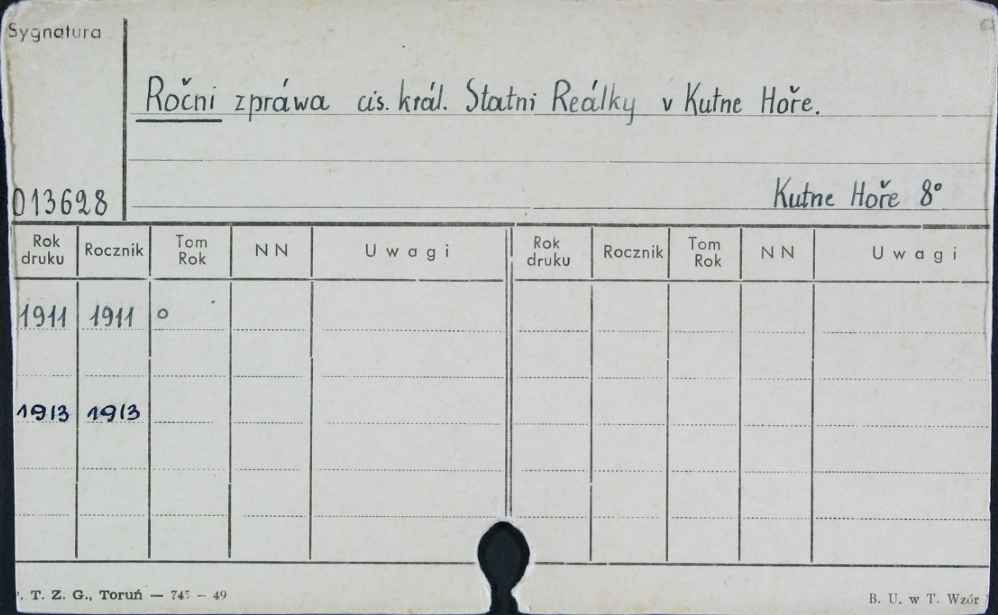 Sygnatura
Ročni zpráwa cis. král. Statni Reálky v Kutne Hoře.
013628
Kutne Hoře 8°
Rok druku Rocznik Tom Rok NN Uwagi Rok druku Rocznik Tom Rok NN Uwagi
1911 1911 o
1913 1913
. T. Z. G., Toruń — 747 — 49
B. U. w T. Wzór